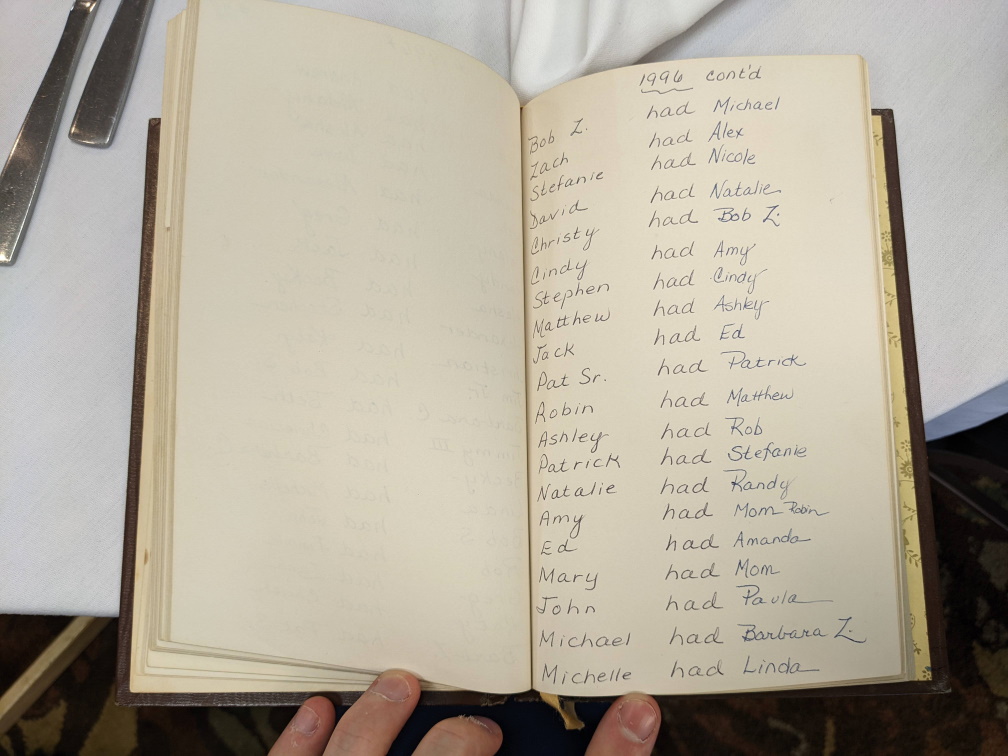 1996 cont'd
Bob Z. had Michael
Zach had Alex
Stefanie had Nicole
David had Natalie
Christy had Bob Z.
Cindy had Amy
Stephen had Cindy
Matthew had Ashley
Jack had Ed
Pat Sr. had Patrick
Robin had Matthew
Ashley had Rob
Patrick had Stefanie
Natalie had Randy
Amy had Mom Robin
Ed had Amanda
Mary had Mom
John had Paula
Michael had Barbara Z.
Michelle had Linda